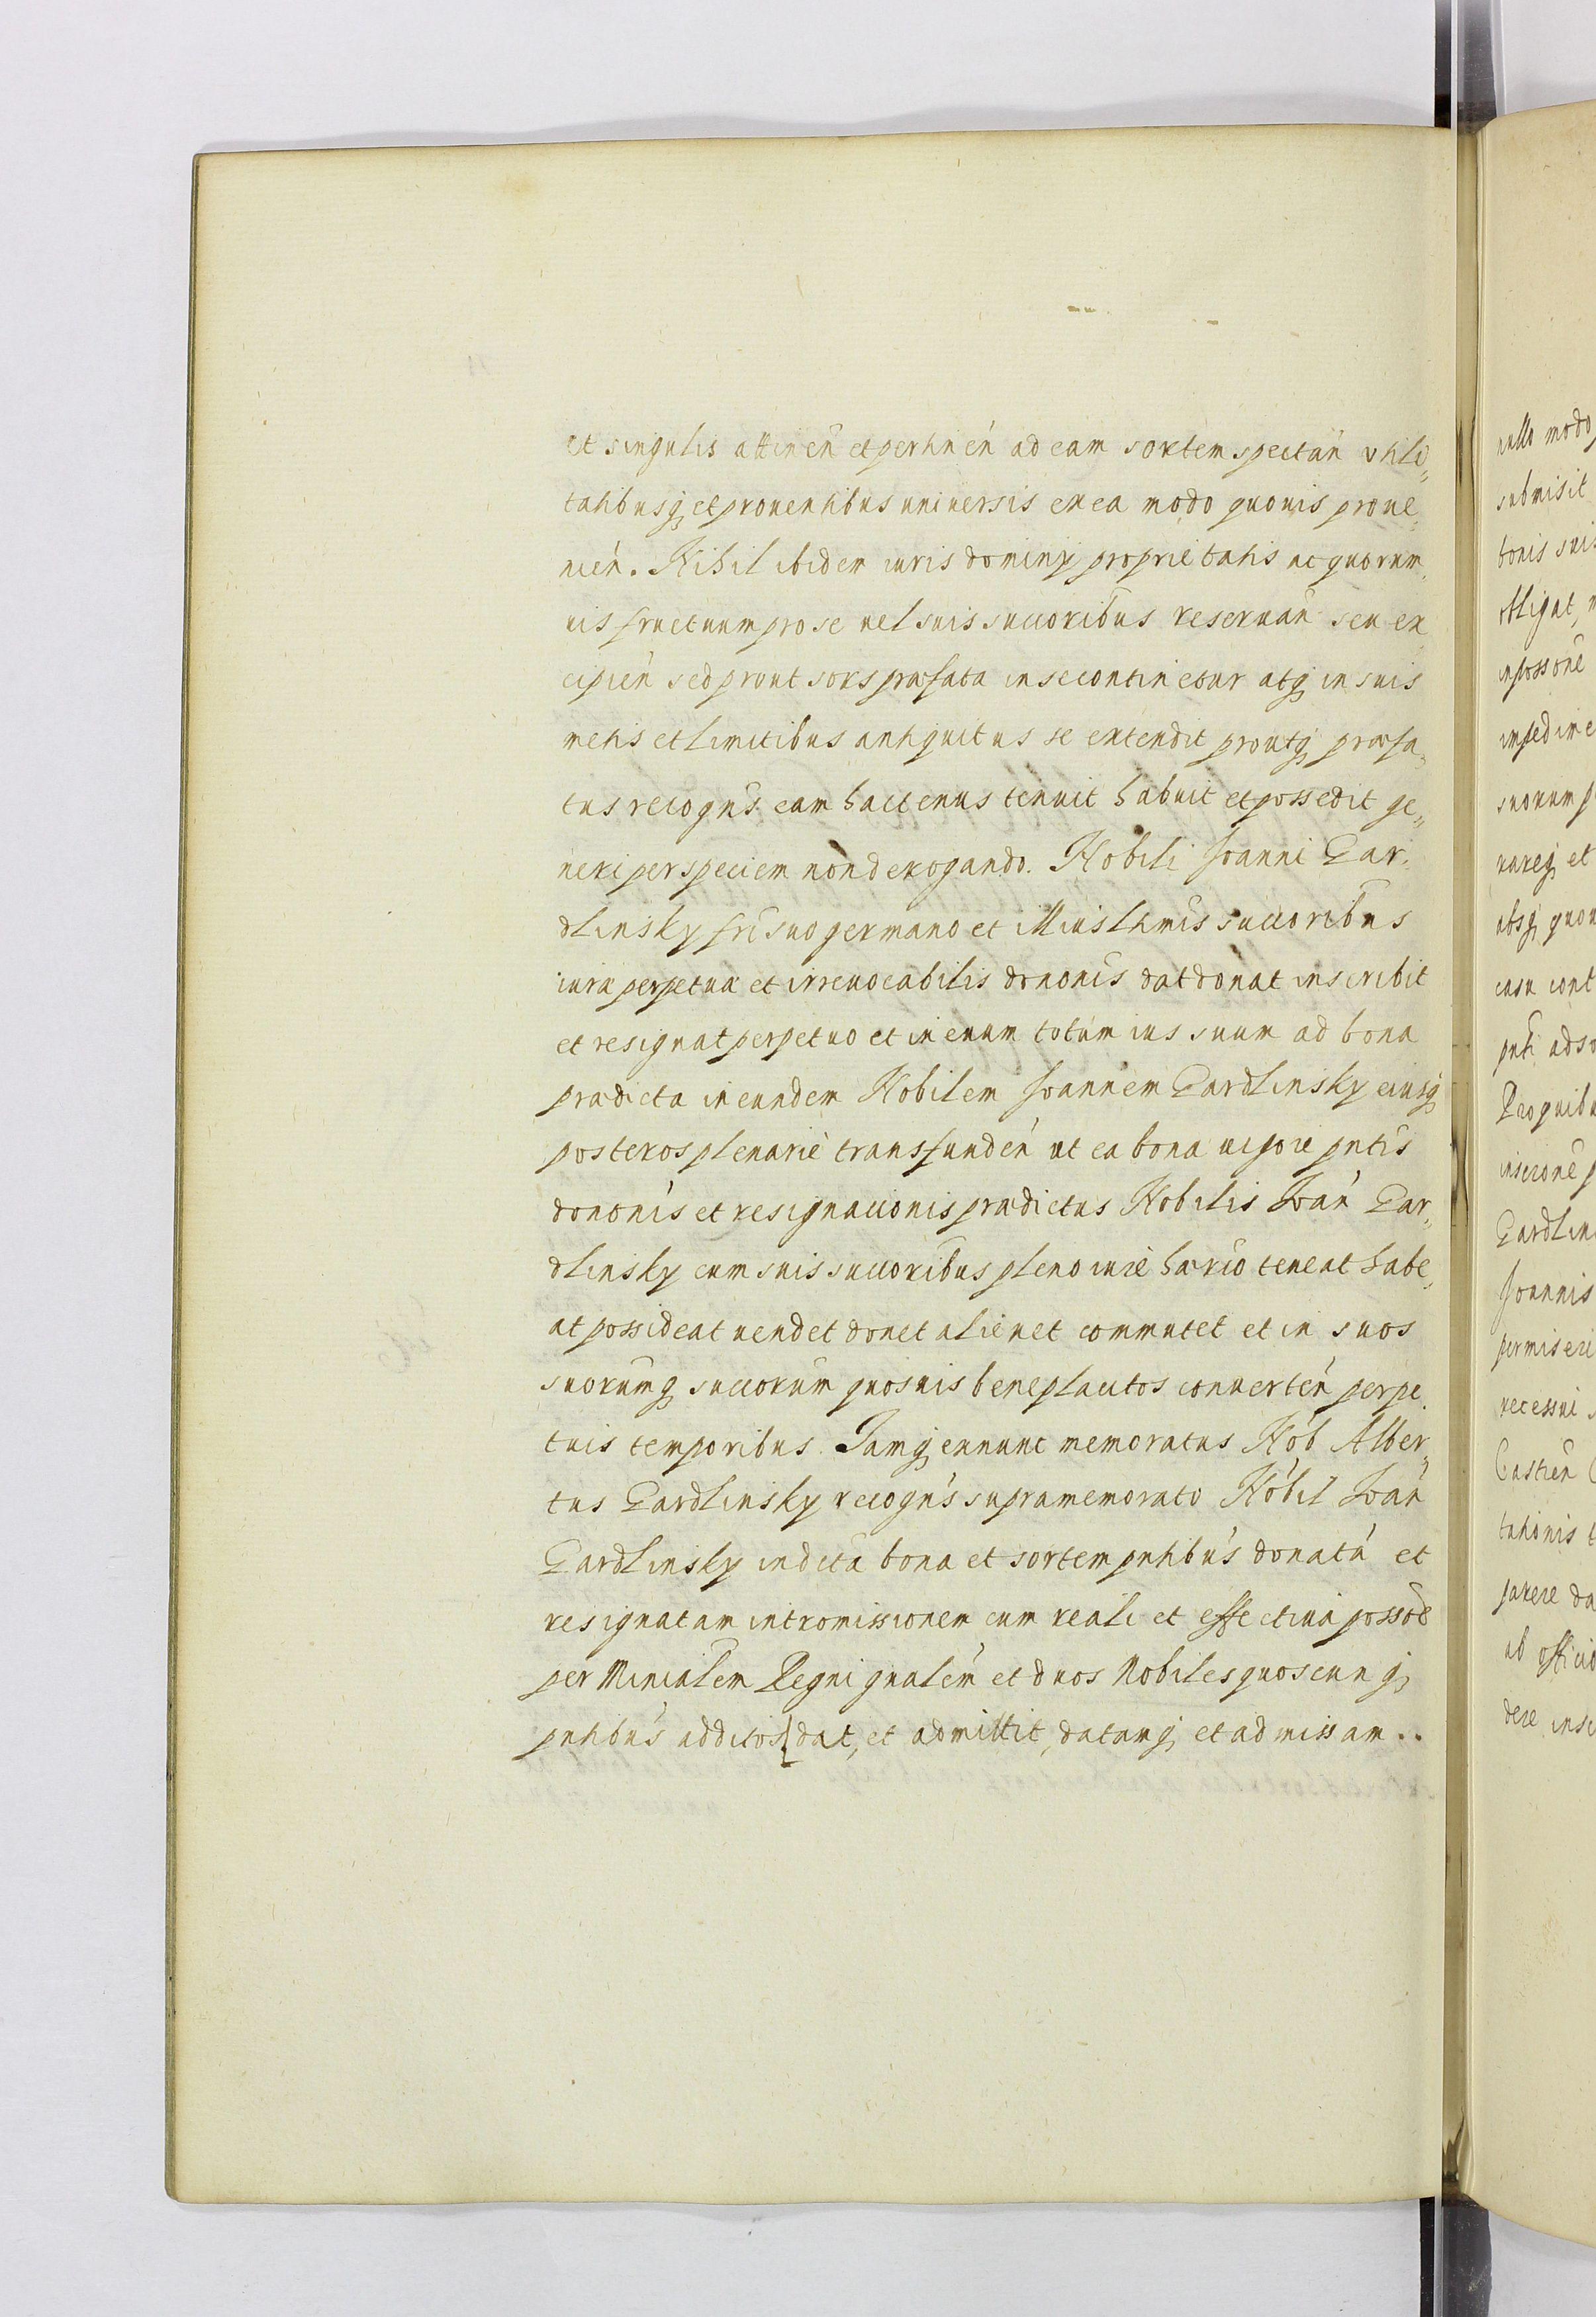 et singulis attineñ et pertineń ad eam sortem spectań vtili„
tatibusq et prouentibus uniuersis ex ea modo quouis proue„
nień. Nihil ibidem iuris dominy proprietatis ac quorum„
uis fructuum pro se uel suis succoribus reseruań seu ex
cipień sed prout sors præfata in se continetur atq in suis
metis et limitibus antiquitus se extendit proutq præfa„
tus recogńs eam hactenus tenuit habuit et possedit ge„
neri per speciem non derogando. Nobili Joanni Gar„
dlinsky fri suo germano et illius lhmis succoribus
iura perpetua et irreuocabilis dononis dat donat inscribit
et resignat perpetuo et in enum totum ius suum ad bona
prædicta in eundem Nobilem Joannem Gardlinsky eiusq
posteros plenariè transfundeń ut ea bona uigore pntis
dononis et resignationis prædictus Nobilis Joań Gar„
dlinsky cum suis succoribus pleno iure hærio teneat habe„
at possideat uendet donet alienet commutet et in suos
suorumq succorum quosuis beneplacitos conuerteń perpe„
tuis temporibus. Jamq ex nunc memoratus Nob Alber„
tus Gardlinsky recogńs supramemorato Nobil Joań
Gardlinsky in dicta bona et sortem pntibus donatá et
resignatam intromissionem cum reali et effectiua possoe
per Minialem Regni gnalem et duos Nobiles quoscunq
pntibus additos dat, et admittit, datamq et admissam..
nullo modo
submisit
bonis suis
obligat,
in possone
impedime
suorum
et
absq quou
casu cont
pnti ad
Pro quibu
inscrone
Gardlin
Joannis
permis
recessui
Castren
parere da
ab officio
dere insc